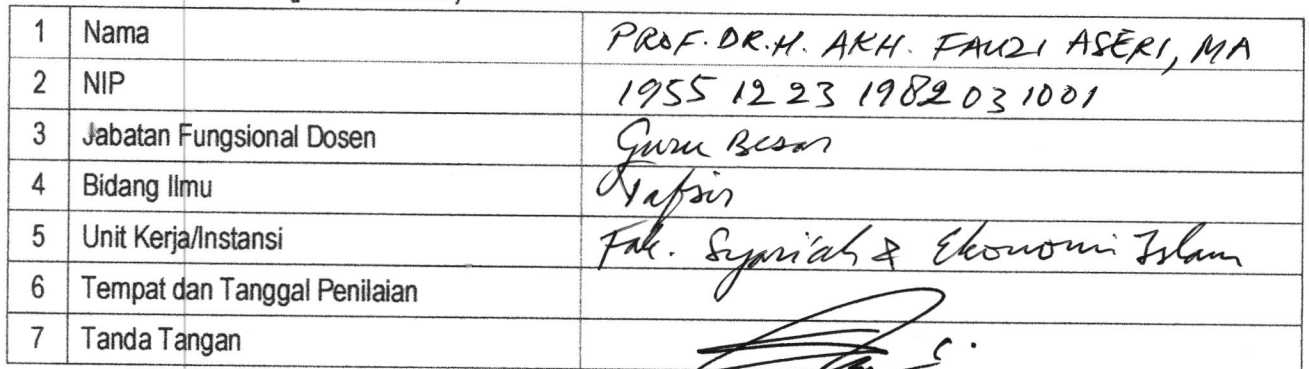 1 Nama PROF. DR. H. AKH. FAUZI ASERI, MA
2 NIP 1955 12 23 1982 03 1001
3 Jabatan Fungsional Dosen Guru Besar
4 Bidang Ilmu Tafsir
5 Unit Kerja/Instansi Fak. Syari'ah & Ekonomi Islam
6 Tempat dan Tanggal Penilaian
7 Tanda Tangan